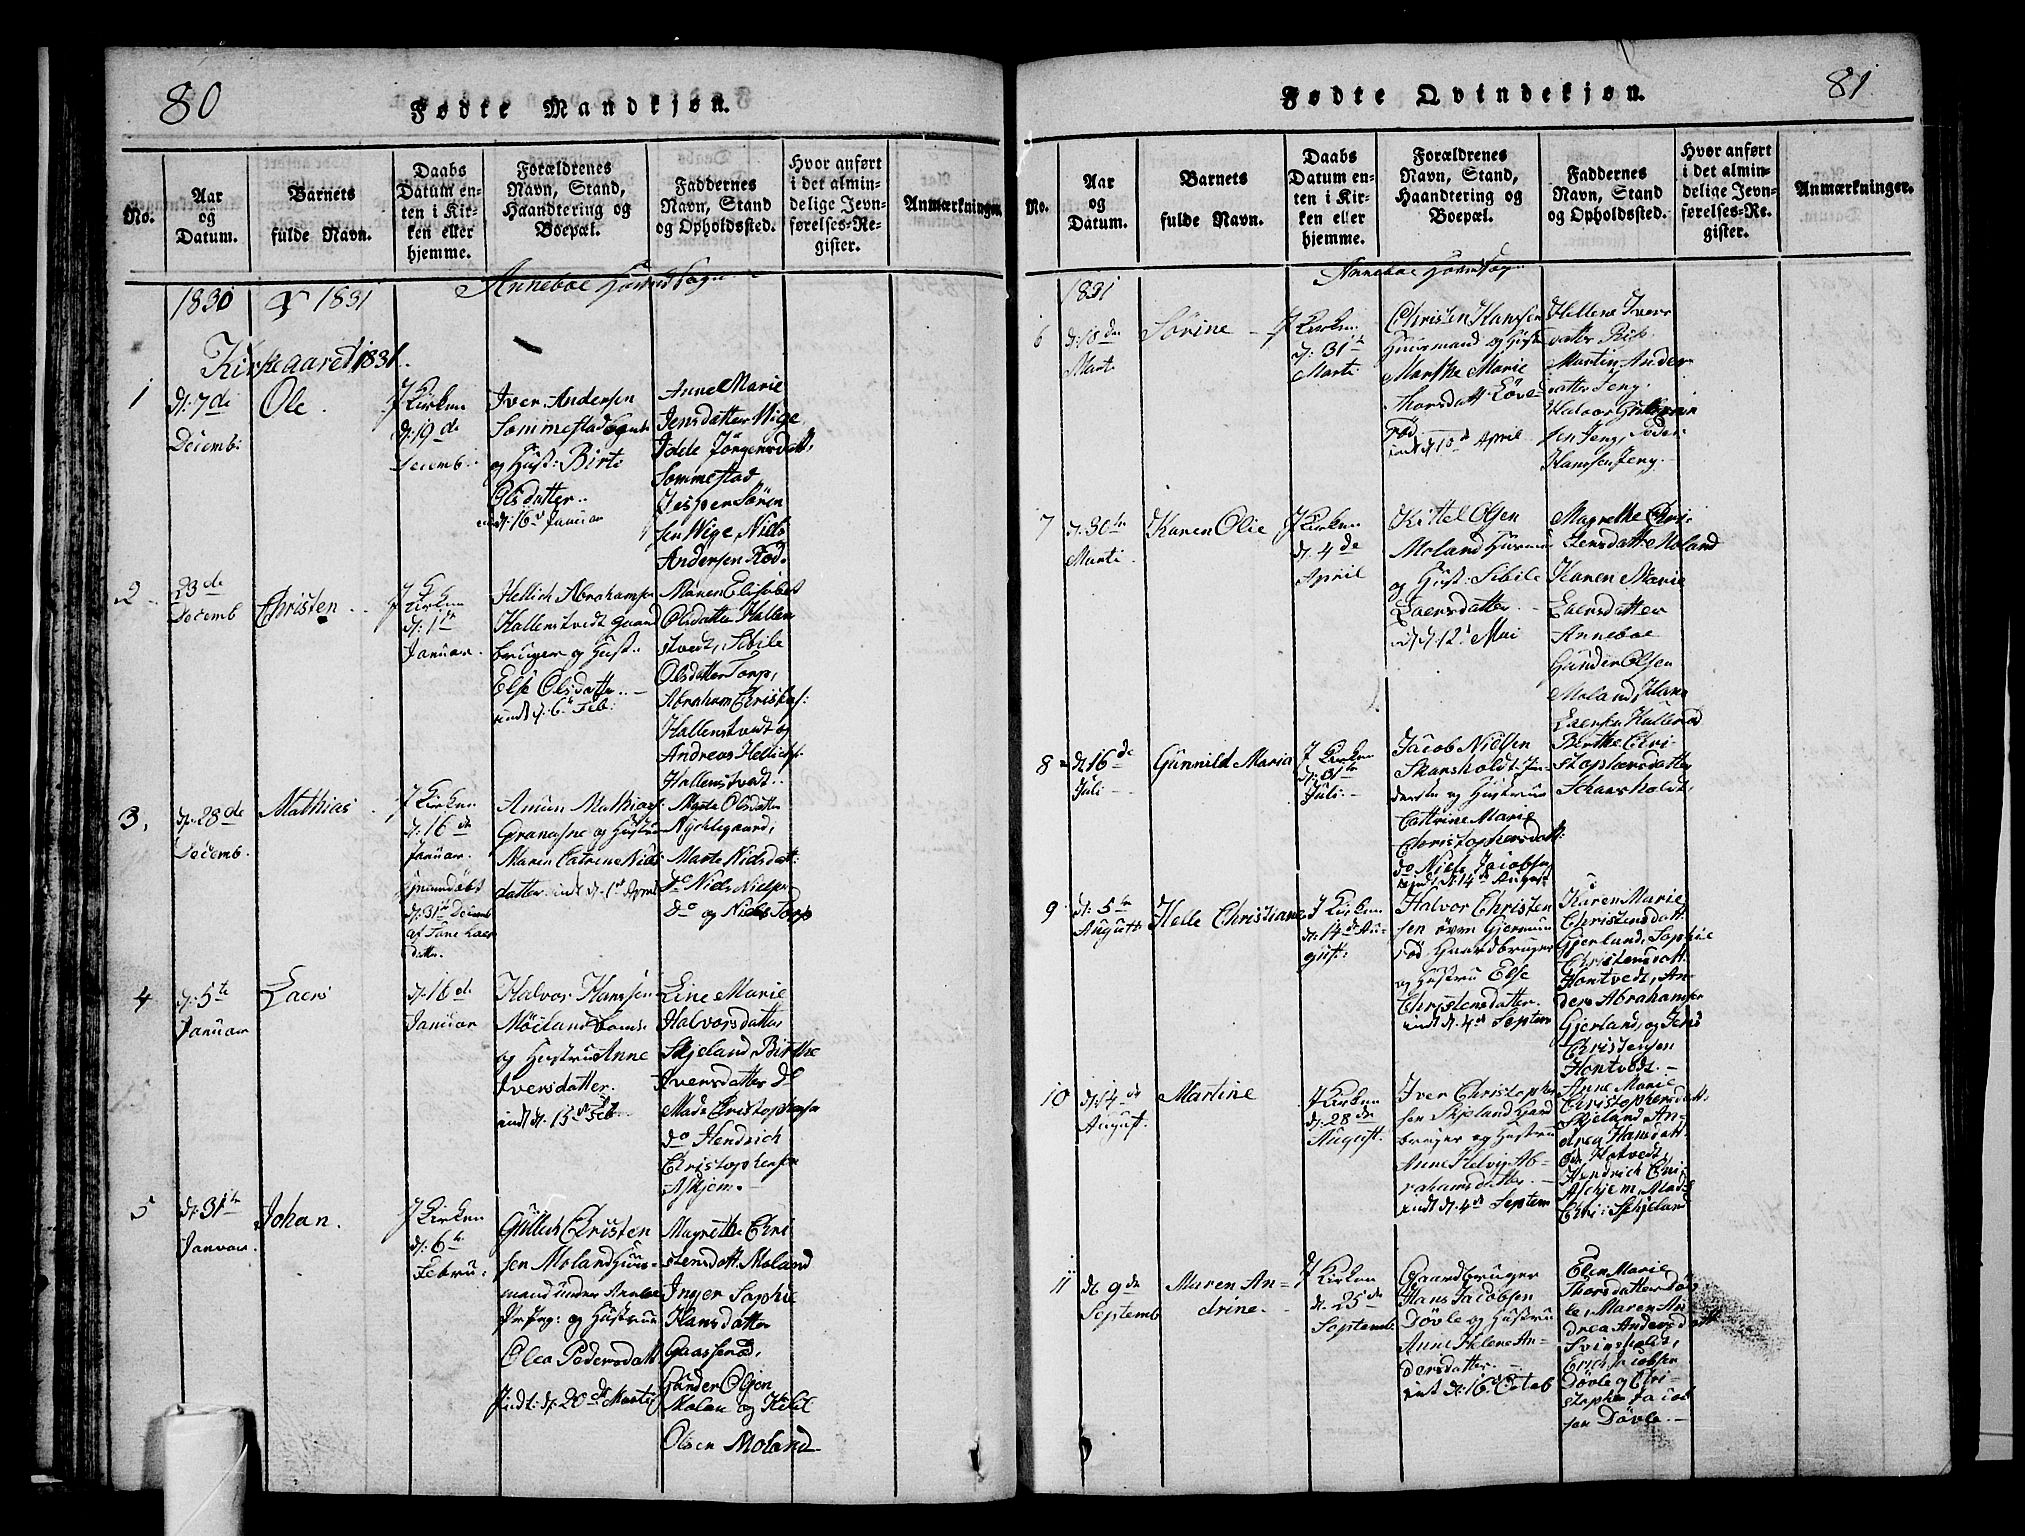 80
Fødte Mandkjøn.
No.
Aar
og
Datum.
Barnets
fulde Navn.
Daabs
Datum en-
ten i Kir-
ken eller
hjemme.
Forældrenes
Navn, Stand,
Haandtering og
Boepæl.
Faddernes
Navn, Stand
og Opholdssted.
Hvor anført
i det almin-
delige Jevn-
førelses-Re-
gister.
Anmærkninger
Anneboe
1830 & 1831
Kirkeaaret 1831.
1
d: 7de
Decemb:
Ole.
I Kirken
d: 19de
Decemb:
Iver Andersen
Sommestad
og Hust: Birte
Olsdatter..
d: 16de Januar
Anne Marie
Jensdatter Vige
Jdde Jörgensdatt:
Sommestad
Jesper Sören
sen Vige, Niels
Andersen Röd.
2
23de
Decemb
Christen
I Kirken
d: 1te
Januar.
Hellich Abrahams
Hallenstvedt gaard
bruger og Hust:
Else Olsdatter..
indt d: 6te Feb:
Maren Elisabet
Olsdatter Hallen
stvedt, Sibile
Olsdatter Torp,
Abraham Christof:
Hallenstvedt og
Andreas Hellichs:
Hallenstvedt..
3.
d: 28de
Decemb.
Mathias
I Kirken
d: 16de
Januar
hjemmedöbt
d: 31te Decemb
af Jane Laers
datter.
Amun Mathias
Granasne og Hustru
Maren Catrene Niels
datter. indt d: 1st April
Marte Olsdatter
Marte Nielsdatt:
do Niels Nielsen
do og Niels Torp
4
d: 5te
Januar
Laers
d: 16de
Januar
Halvor Hanssen
Möiland
og Hustru Anne
Iversdatter.
indt d: 13de Feb.
Line Marie
Halvorsdatter
Skjeland, Birthe
Iversdatter do
Mads Christophersen
do Hendrich
Christophersen
Askjem.
5
d: 31te
Januar.
Johan.
I Kirken
d: 6te
Febru:
Gullich Christen
sen Moland Huus-
mand under Anneboe
og Hustrue
Olea Pedersdatt
Indt: d: 20de Martij
Magrethe Chri
stensdatt: Moland
Inger Sophie
Hansdatter
Gaasseröd,
Gunder Olsen
Molan og Kild
Olsen Moland
81
Fødte Qvindekjøn.
No.
Aar
og
Datum.
Barnets
fulde Navn.
Daabs
Datum en-
ten i Kir-
ken eller
hjemme.
Forældrenes
Navn, Stand,
Haandtering og
Boepæl.
Faddernes
Navn, Stand
og Opholdssted.
Hvor anført
i det almin-
delige Jevn-
førelses-Re-
gister.
Anmærkninger.
Anneboe
1831
6
d: 18de
Marti
Sörine
I Kirken
d: 31te
Marti
Christen Hanssen
Huusmand og Hust
Marthe Marie
Thorsdatt: Löve-
röd.
indt d: 10de April
Hellene Ivers
datter Riis
Martin Anders
datter Jeng
Halvor Guttorm
sen Jeng, Peder
Hanssen Jeng.
7
d: 30te
Marti.
Karen Olie
I Kirken
d: 4de
April
Kittel Olsen
Moland Huusm:
og Hust: Sibile
Laersdatter.
indt d: 12te Mai
Magrethe Chri-
stensdatt: Moland
Karen Marie
Laersdatter
Anneboe
Gunder Olsen
Moland, Hans
Laersen Halleröd
8
d: 16de
Juli
Gunnild Maria
I Kirken
d: 31te
Juli.
Jacob Nielsen
Skarsholdt
og Hustrue
Cattrine Marie
Christophersdatt:
do Niels Jacobsen
indt d: 14de August
Berthe Chri-
stophersdatter
Schaasholdt,
9
d: 5te
August
Helle Christiane
I Kirken
d: 14de Au-
gust:
Halvor Christen
sen övre Gjermun
röd Gaardbruger
og Hustru Else
Christensdatter.
indt d: 4de Septem
Karen Marie
Christensdatt:
Gjerland, Sophie
Christensdatt:
Hontvedt, An-
ders Abrahamsen
Gjerland, og Jens
Christensen
Hontvedt.
10
d: 14de
August.
Martine
I Kirken
d: 28de
August.
Iver Christopher
sen Skjeland Gard
bruger og Hustru
Anne Helvig Ab-
rahamsdatter.
indt d: 4de Septem
Anne Marie
Christophersdatt:
Skjeland, An-
drea Hansdatt:
Hotvedt,
Hendrich Chri
Aschjem, Mads
Chri: Skjeland
11
d: 9de
Septemb
Maren An-
drine.
I Kirken
d: 25de
Septemb:
Gaardbruger
Hans Jacobsen
Dövle og Hustru
Anne Helene An-
dersdatter.
indt d: 16de Octob
Elen Marie
Thorsdatter Döv
le, Maren An
drea Andersdatt
Svinsholdt,
Erich Jacobsen
Dövle og Chri-
stopher Jacob
sen Dövle.